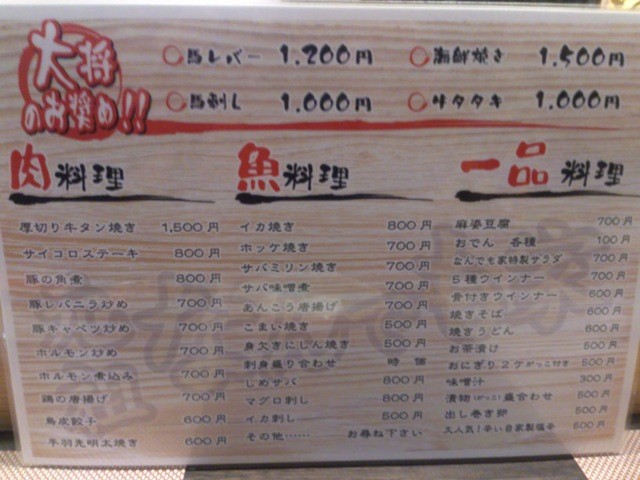 大将
のお奨め!!
○馬レバー 1.200円
○海鮮焼き 1.500円
○馬刺し 1.000円
○牛タタキ 1.000円
肉料理
厚切り牛タン焼き 1,500円
サイコロステーキ 800円
豚の角煮 800円
豚レバニラ炒め 700円
豚キャベツ炒め 700円
ホルモン炒め 700円
ホルモン煮込み 700円
鶏の唐揚げ 700円
鳥皮餃子 600円
手羽先明太焼き 600円
魚料理
イカ焼き 800円
ホッケ焼き 700円
サバミリン焼き 700円
サバ味噌煮 700円
あんこう唐揚げ 700円
こまい焼き 500円
身欠きにしん焼き 500円
刺身盛り合わせ 時価
しめサバ 800円
マグロ刺し 800円
イカ刺し 500円
その他…… お尋ね下さい
一品料理
麻婆豆腐 700円
おでん 各種 100円
なんでも家特製サラダ 700円
5種ウインナー 700円
骨付きウインナー 600円
焼きそば 600円
焼きうどん 600円
お茶漬け 500円
おにぎり2ケがっこ付き 500円
味噌汁 300円
漬物(がっこ)盛合わせ 500円
出し巻き卵 500円
大人気!辛い自家製塩辛 500円